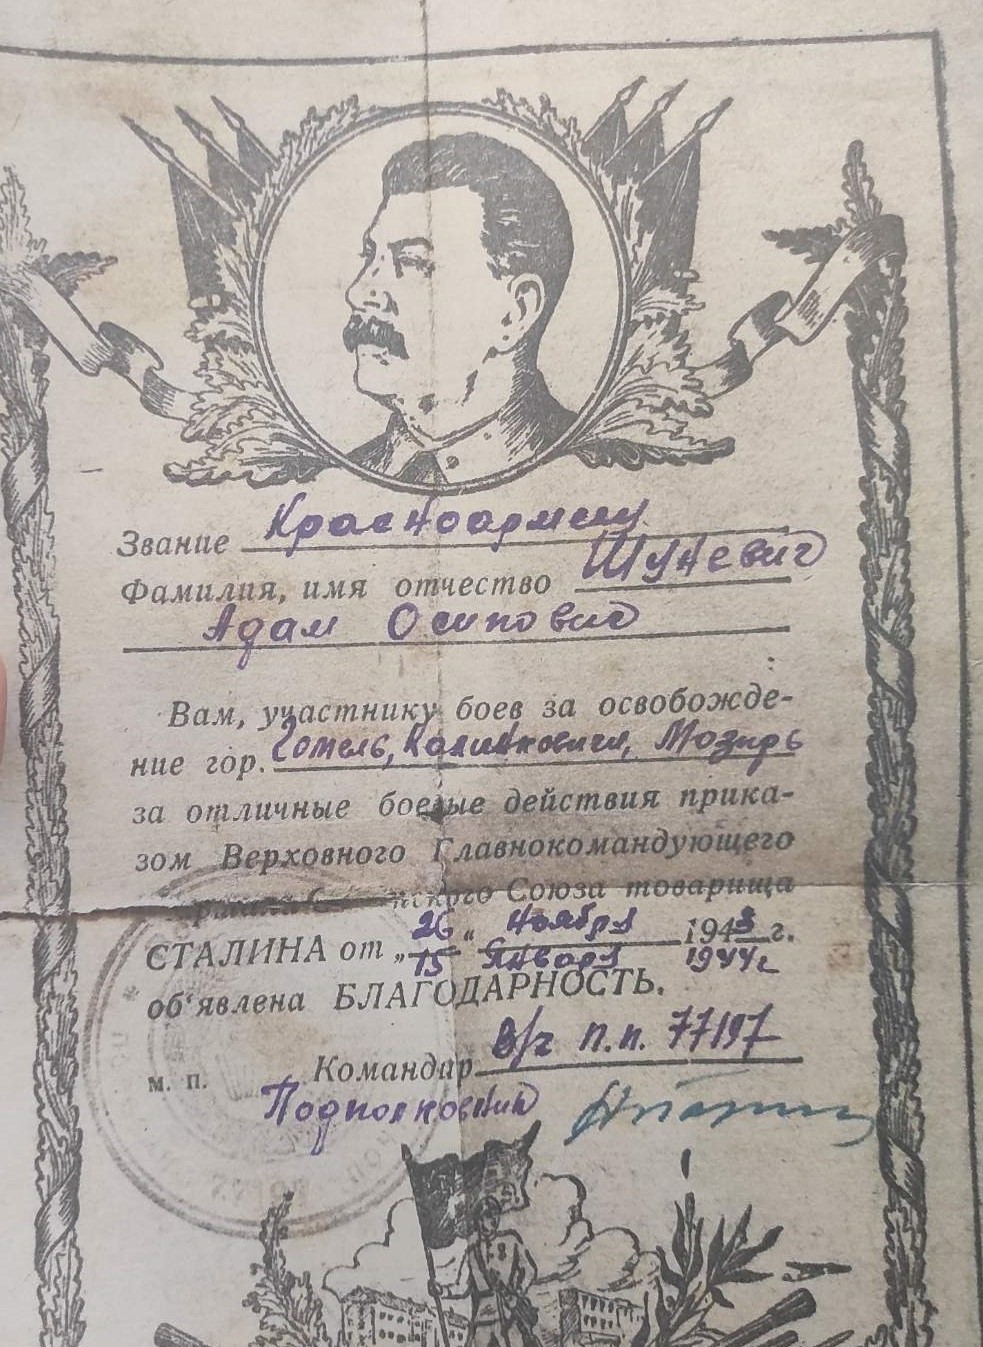 Звание Красноармеец
Фамилия, имя отчество Шуневич
Адам Осипович
Вам, участнику боев за освобожде-
ние гор. Гомель, Калинковичи, Мозирь
за отличные боевые действия прика-
зом Верховного Главнокомандующего
Союза товарища
СТАЛИНА от „26“ Ноября 1943 г.
15 Января 1944 г
об'явлена БЛАГОДАРНОСТЬ.
м. п. Командир в/ч п.п. 77197
Подполковник